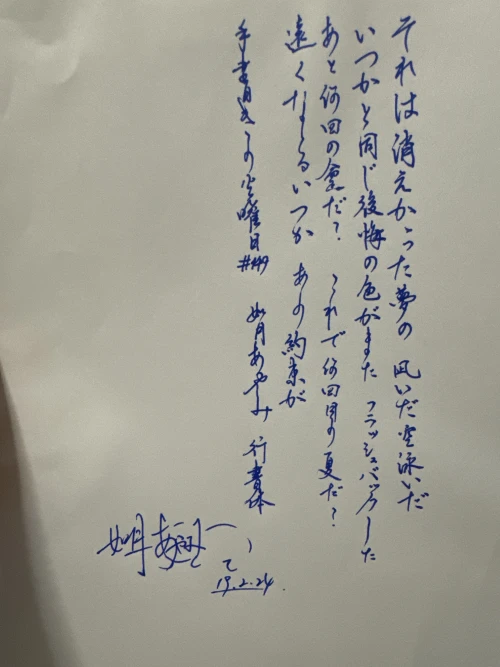 それは消えかった夢の 凪いだ空泳いだ
いつかと同じ後悔の色がまた フラッシュバックした
あと何回の夏だ? これで何回目の夏だ?
遠くなるいつか あの約束が
手書きの火曜日#149 如月あやみ 行書体
19.2.24